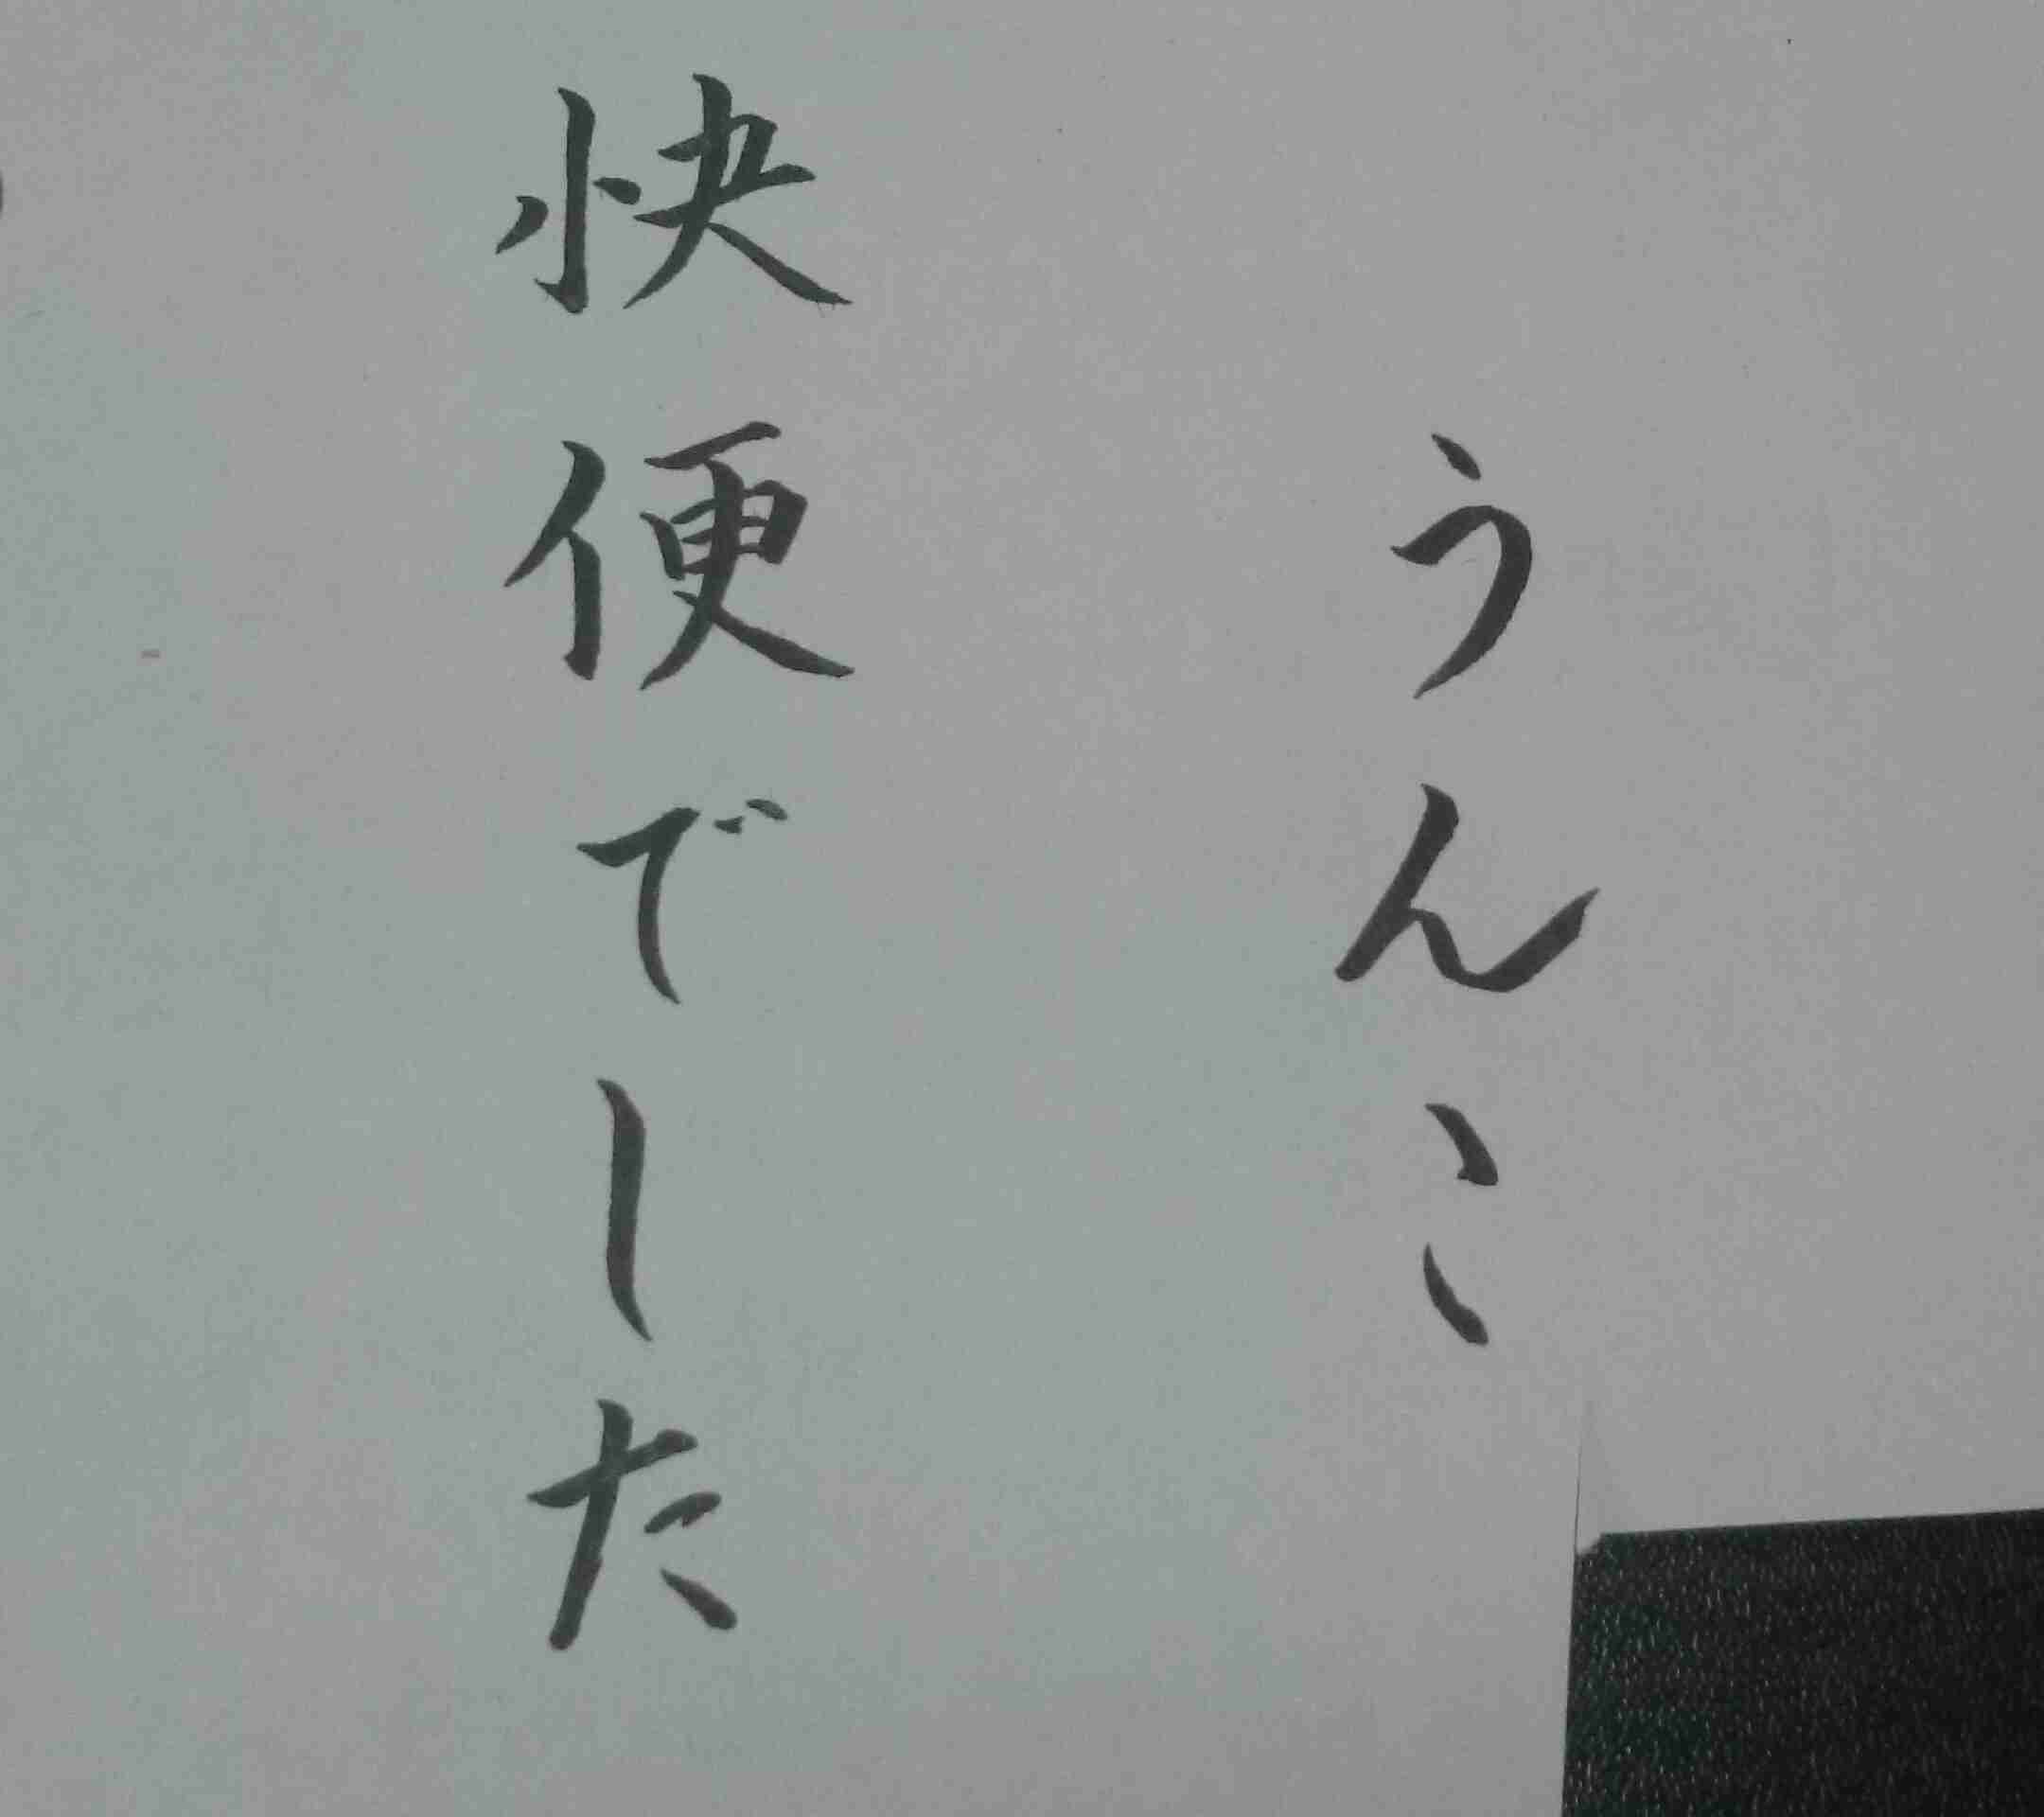 うんこ
快便でした